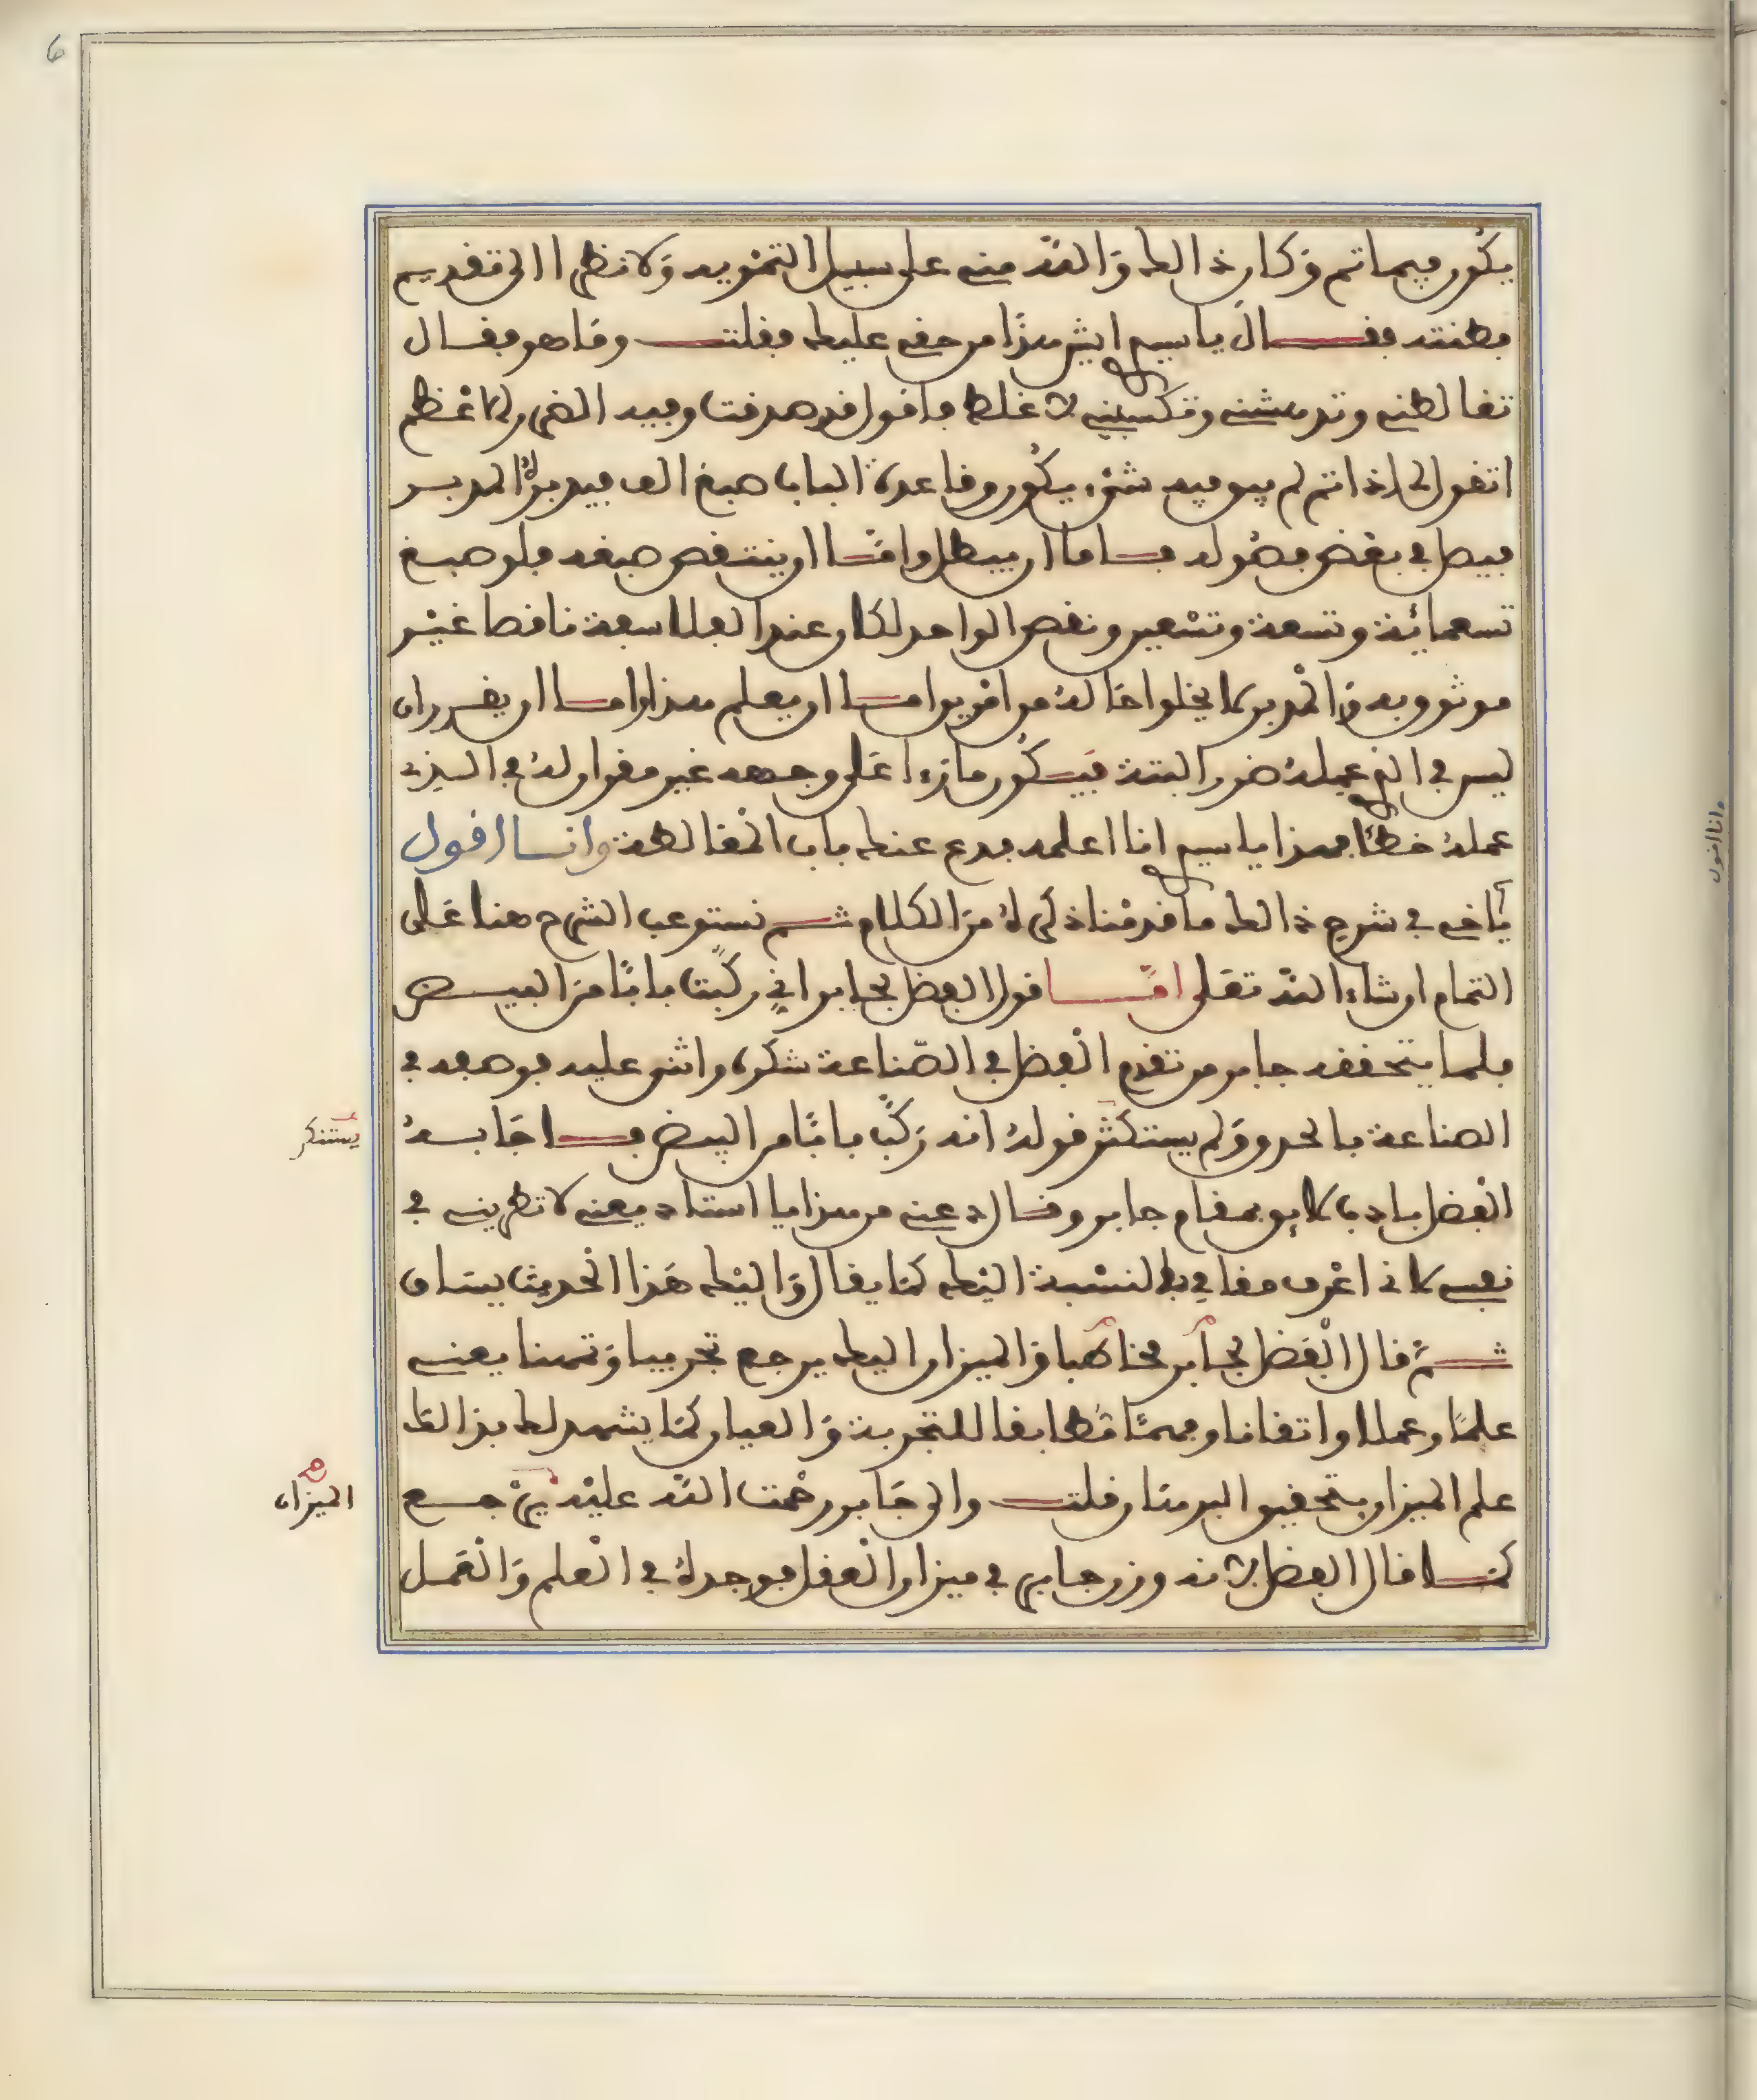 6
يكون فيما تم وكان ذالك والله مني على سبيل التمويه ولا نظرا الى تقديم
فطنته فقال يا سيدي ايش هذا من حقي عليك فقلت وما هو فقال
تغالطني وتدهشني وتكسبني الغلط فاقول قد صدقت وفيه الضر ولا اعظم
اتقول لي اذا تم لم يبق فيه شيء يكون وقاعدة الباب صبغ الف فيدبره المدبر
فيصل في بعض فصوله فاما ان يبطل واما ان ينتقص صبغه فلو صبغ
تسعمائة وتسعة وتسعين ونقص الواحد لكان عند الفلاسفة ناقصا غير
موثوق به والمدبر لا يخلوا حاله من امرين اما ان يعلم هذا واما ان يقرر ان
ليس في الذي عمله ضرر البتة فيكون مارا على وجهه غير مقر ان له في الذي
عمله خطئا فهذا يا سيدي انا اعلمه فدع عنك باب المغالطة وانا اقول
يا اخي في شرح ذالك ما قدمنا ذكره من الكلام ثم نستوعب الشرح هنا على
التمام ان شاء الله تعلى اما قول الفضل لجابر اني ركبت بابا من البيض
فلما يتحققه جابر من تقدم الفضل في الصناعة شكره واثنى عليه فوصفه في
الصناعة بالحذق ولم يستكثر قوله انه ركب بابا من البيض فاجابه
الفضل بادب لايق بمقام جابر وقال دعني من هذا يا استاد يعني لا تطريني في
نفسي لاني اعرف مقامي بالنسبة اليك كما يقال واليك هذا الحديث يساق
ثم قال الفضل لجابر مخاطبا والميزان اليك يرجع تجريبا وتهنا يعني
علما وعملا واتقانا وفهما مطابقا للتجربة والعيار كما يشهد لك بذالك
علم الميزان بتحقيق البرهان قلت والى جابر رحمت الله عليه يرجع
كما قال الفضل لانه وزن جابر في ميزان العقل فوجده في العلم والعمل
يستنكر
الميزان
وانا اقول